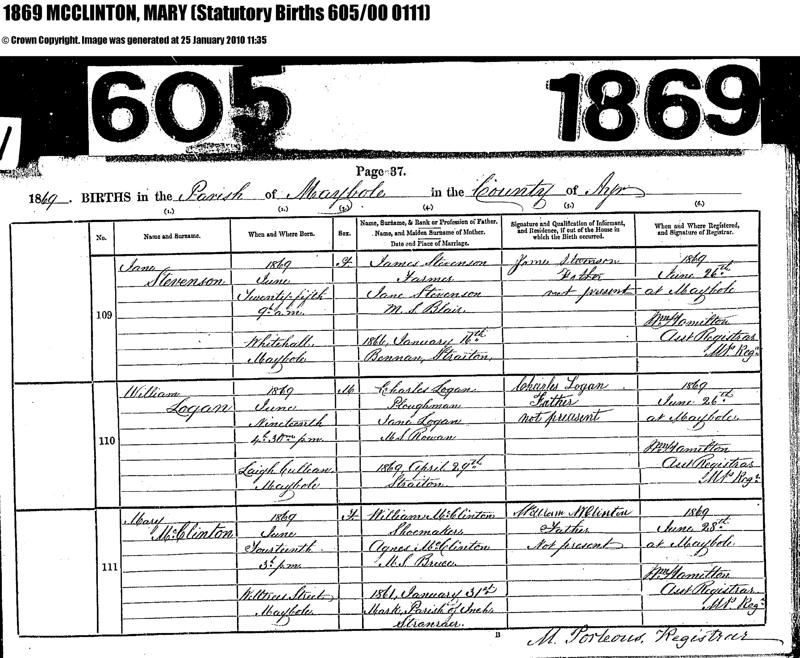 1869 MCCLINTON, MARY (Statutory Births 605/00 0111)
© Crown Copyright. Image was generated at 25 January 2010 11:35
605 1869
Page 37.
1869. BIRTHS in the Parish of Maybole in the County of Ayr
(1.) (2.) (3.) (4.) (5.) (6.)
No. Name and Surname. When and Where Born. Sex. Name, Surname, & Rank or Profession of Father. Name, and Maiden Surname of Mother. Date and Place of Marriage. Signature and Qualification of Informant, and Residence, if out of the House in which the Birth occurred. When and Where Registered, and Signature of Registrar.
109
Jane
Stevenson
1869
June
Twenty-fifth
9h a.m.
Whitehall
Maybole
F
James Stevenson
Farmer
Jane Stevenson
M.S. Blair
1866, January 16th
Bennan, Straiton.
James Stevenson
Father
not present
1869
June 26th
at Maybole
Wm Hamilton
Asst Registrar
110
William
Logan
1869
June
Nineteenth
4h 30m p.m.
Laigh Culzean
Maybole
M
Charles Logan
Ploughman
Jane Logan
M.S. Rowan
1869, April 29th
Straiton
Charles Logan
Father
not present
1869
June 26th
at Maybole.
Wm Hamilton
Asst Registrar
111
Mary
McClinton
1869
June
Fourteenth
3h p.m.
Street
Maybole
F
William McClinton
Shoemaker
Agnes McClinton
M.S. Bruce
1861, January 31st
Mark, Parish of Inch,
Stranraer.
William McClinton
Father
Not present
1869
June 28th
at Maybole.
Wm Hamilton
Asst Registrar
M. Porteous, Registrar